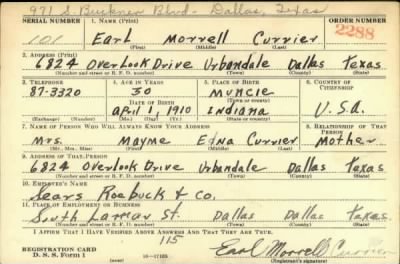 971 S. Buckner Blvd - Dallas, Texas
SERIAL NUMBER 1. NAME (Print) ORDER NUMBER
101 Earl Morrell Currier 2288
(First) (Middle) (Last)
2. ADDRESS (Print)
6824 Overlook Drive Urbandale Dallas Texas
(Number and street or R. F. D. number) (Town) (County) (State)
3. TELEPHONE 4. AGE IN YEARS 5. PLACE OF BIRTH 6. COUNTRY OF CITIZENSHIP
87-3320 30 Muncie
DATE OF BIRTH (Town or county)
April 1, 1910 Indiana U.S.A.
(Exchange) (Number) (Mo.) (Day) (Yr.) (State or country)
7. NAME OF PERSON WHO WILL ALWAYS KNOW YOUR ADDRESS 8. RELATIONSHIP OF THAT PERSON
Mrs. Mayme Edna Currier Mother
(Mr., Mrs., Miss) (First) (Middle) (Last)
9. ADDRESS OF THAT PERSON
6824 Overlook Drive Urbandale Dallas Texas
(Number and street or R. F. D. number) (Town) (County) (State)
10. EMPLOYER'S NAME
Sears Roebuck & Co.
11. PLACE OF EMPLOYMENT OR BUSINESS
South Lamar St. Dallas Dallas Texas
(Number and street or R. F. D. number) (Town) (County) (State)
I AFFIRM THAT I HAVE VERIFIED ABOVE ANSWERS AND THAT THEY ARE TRUE.
115
REGISTRATION CARD
D. S. S. Form 1 16-17105 Earl Morrell Currier
(Registrant's signature)